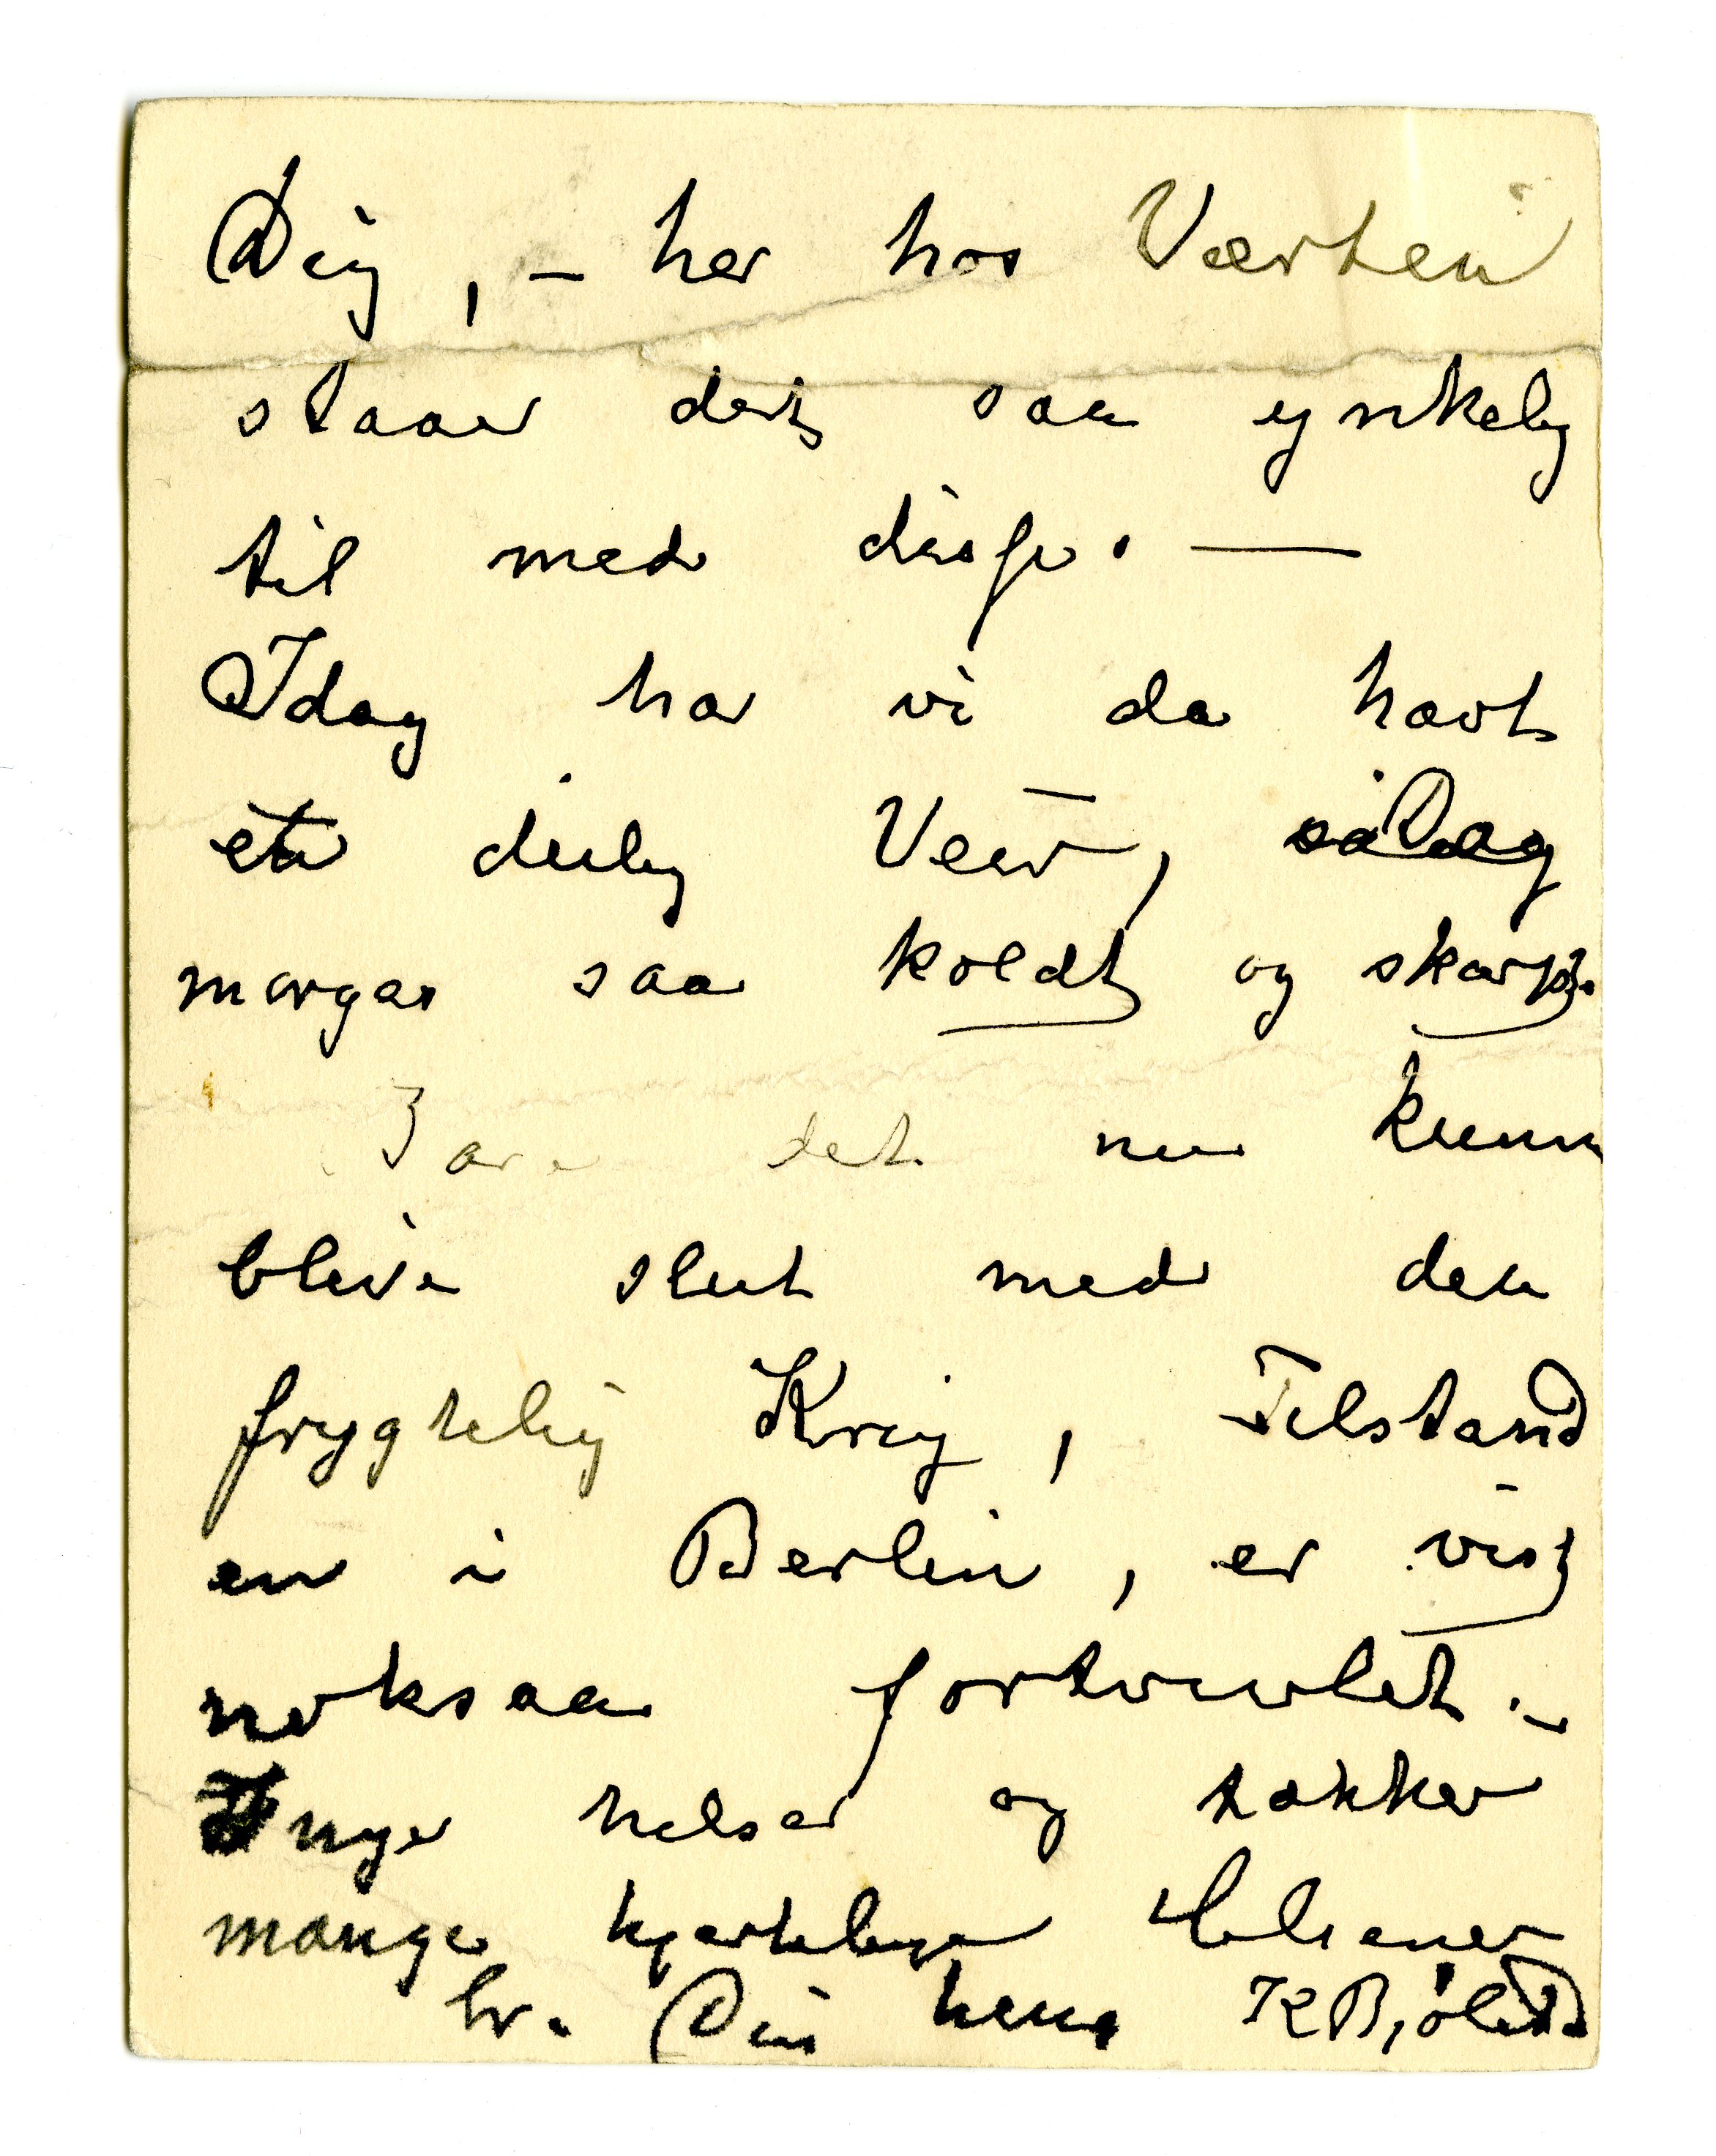 Dig, – her hos Værten
staar det saa ynkelig
til med disse. —
Idag har vi da havt
et deilig Veir,
morges saa koldt og skarpt.
Bare det nu kunne
blive slut med den
frygtelig Krig, Tilstand
en i Berlin, er vist
noksaa fortvivlet. –
Inge hilser og takker
mange hjertelige Hilsener
fra Din hengi K Bjölstad